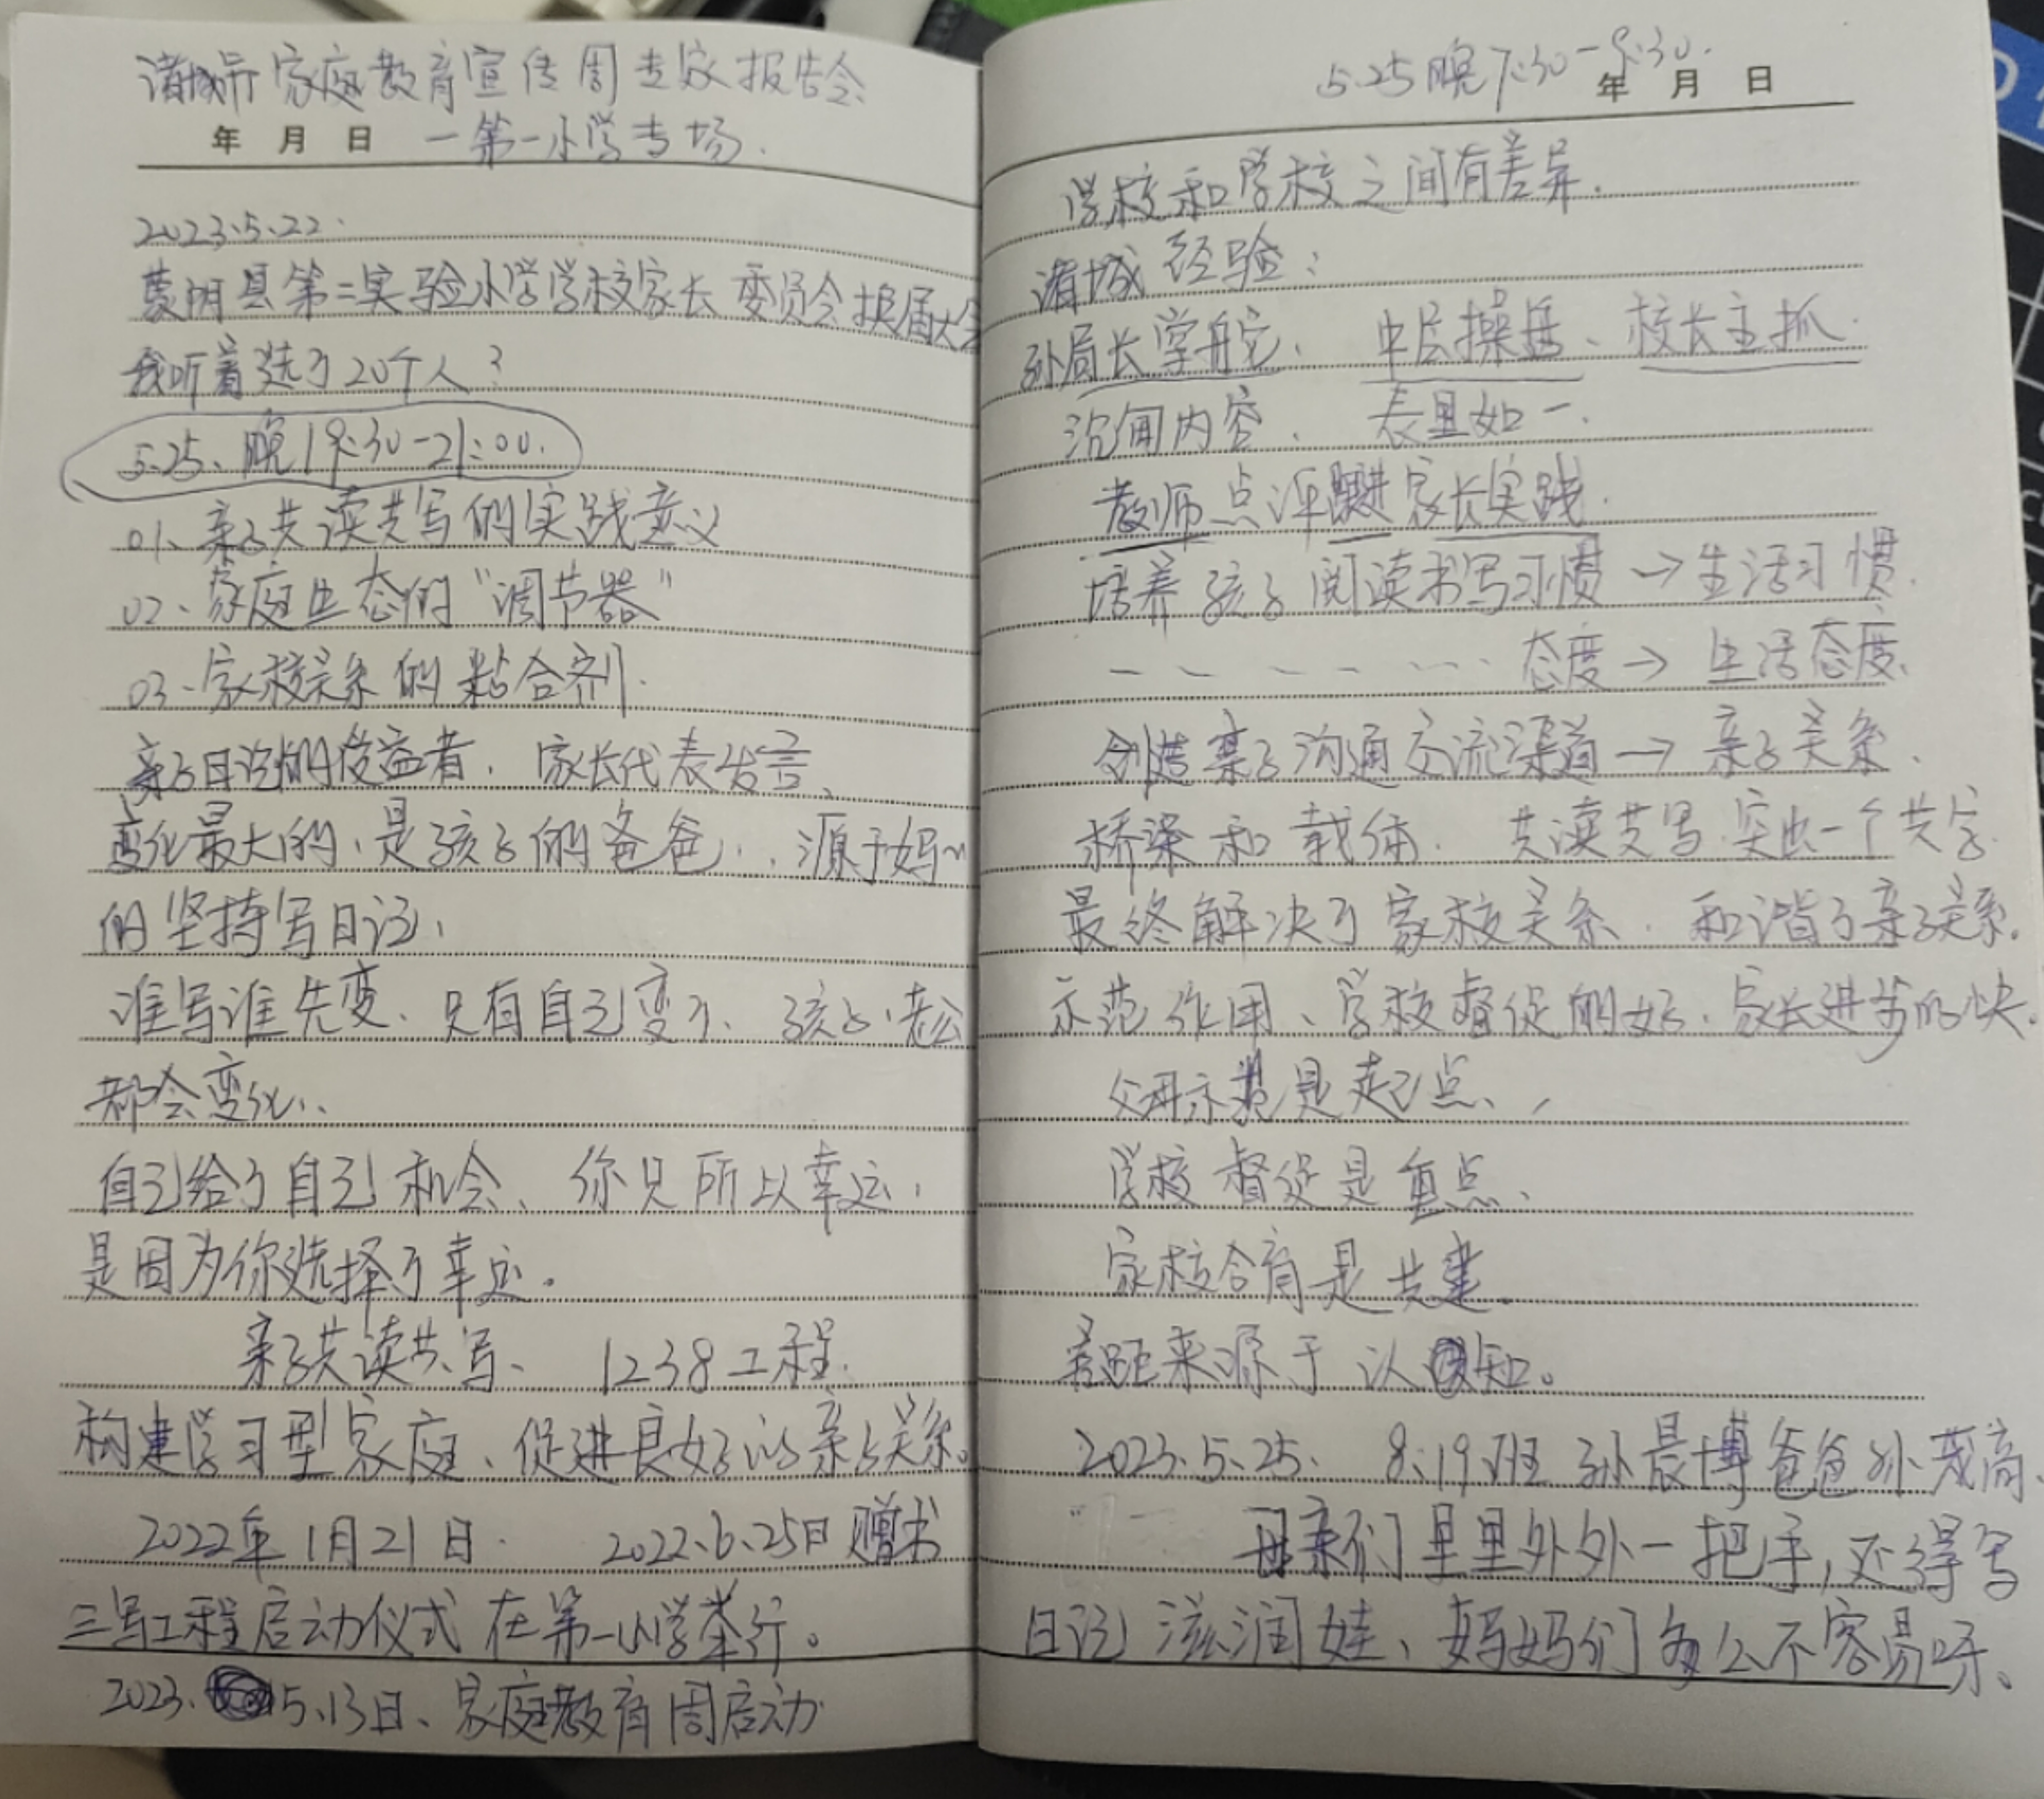 诸城市家庭教育宣传周专家报告会
年 月 日 一第一小学专场.
2023.5.22.
蒙阴县第二实验小学学校家长委员会换届大会
我听着选了20个人?
5.25、晚19:30-21:00.
01、亲子共读共写的实践意义
02、家庭生态的“调节器”
03、家校关系的粘合剂.
亲子日记的受益者.家长代表发言、
变化最大的,是孩子的爸爸,.源于妈〃
的坚持写日记、
谁写谁先变、只有自己变了、孩子、老公
都会变化..
自己给了自己机会、你只所以幸运,
是因为你选择了幸运。
亲子共读共写、 1238工程.
构建学习型家庭、促进良好的亲子关系。
2022年1月21日. 2022.6.25日赠书
三写工程启动仪式在第一小学举行。
2023. 5.13日、家庭教育周启动
5.25晚7:30-9:30.
年 月 日
学校和学校之间有差异.
诸城经验:
孙局长掌舵、 中层操盘、校长主抓.
内容、 表里如一.
教师点评跟进家长实践.
培养孩子阅读书写习惯→生活习惯.
— — — — — … 态度→生活态度、
创造亲子沟通交流渠道→亲子关系、
桥梁和载体. 共读共写.突出一个共字.
最终解决了家校关系.和谐了亲子关系.
示范作用、学校督促的好、家长进步的快.
父母示范是起点、
学校督促是重点、
家校合育是共建.
差距来源于认知。
2023.5.25. 8:19班孙晨博爸爸孙茂高、
母亲们里里外外一把手,还得写
日记滋润娃、妈妈们多么不容易呀、